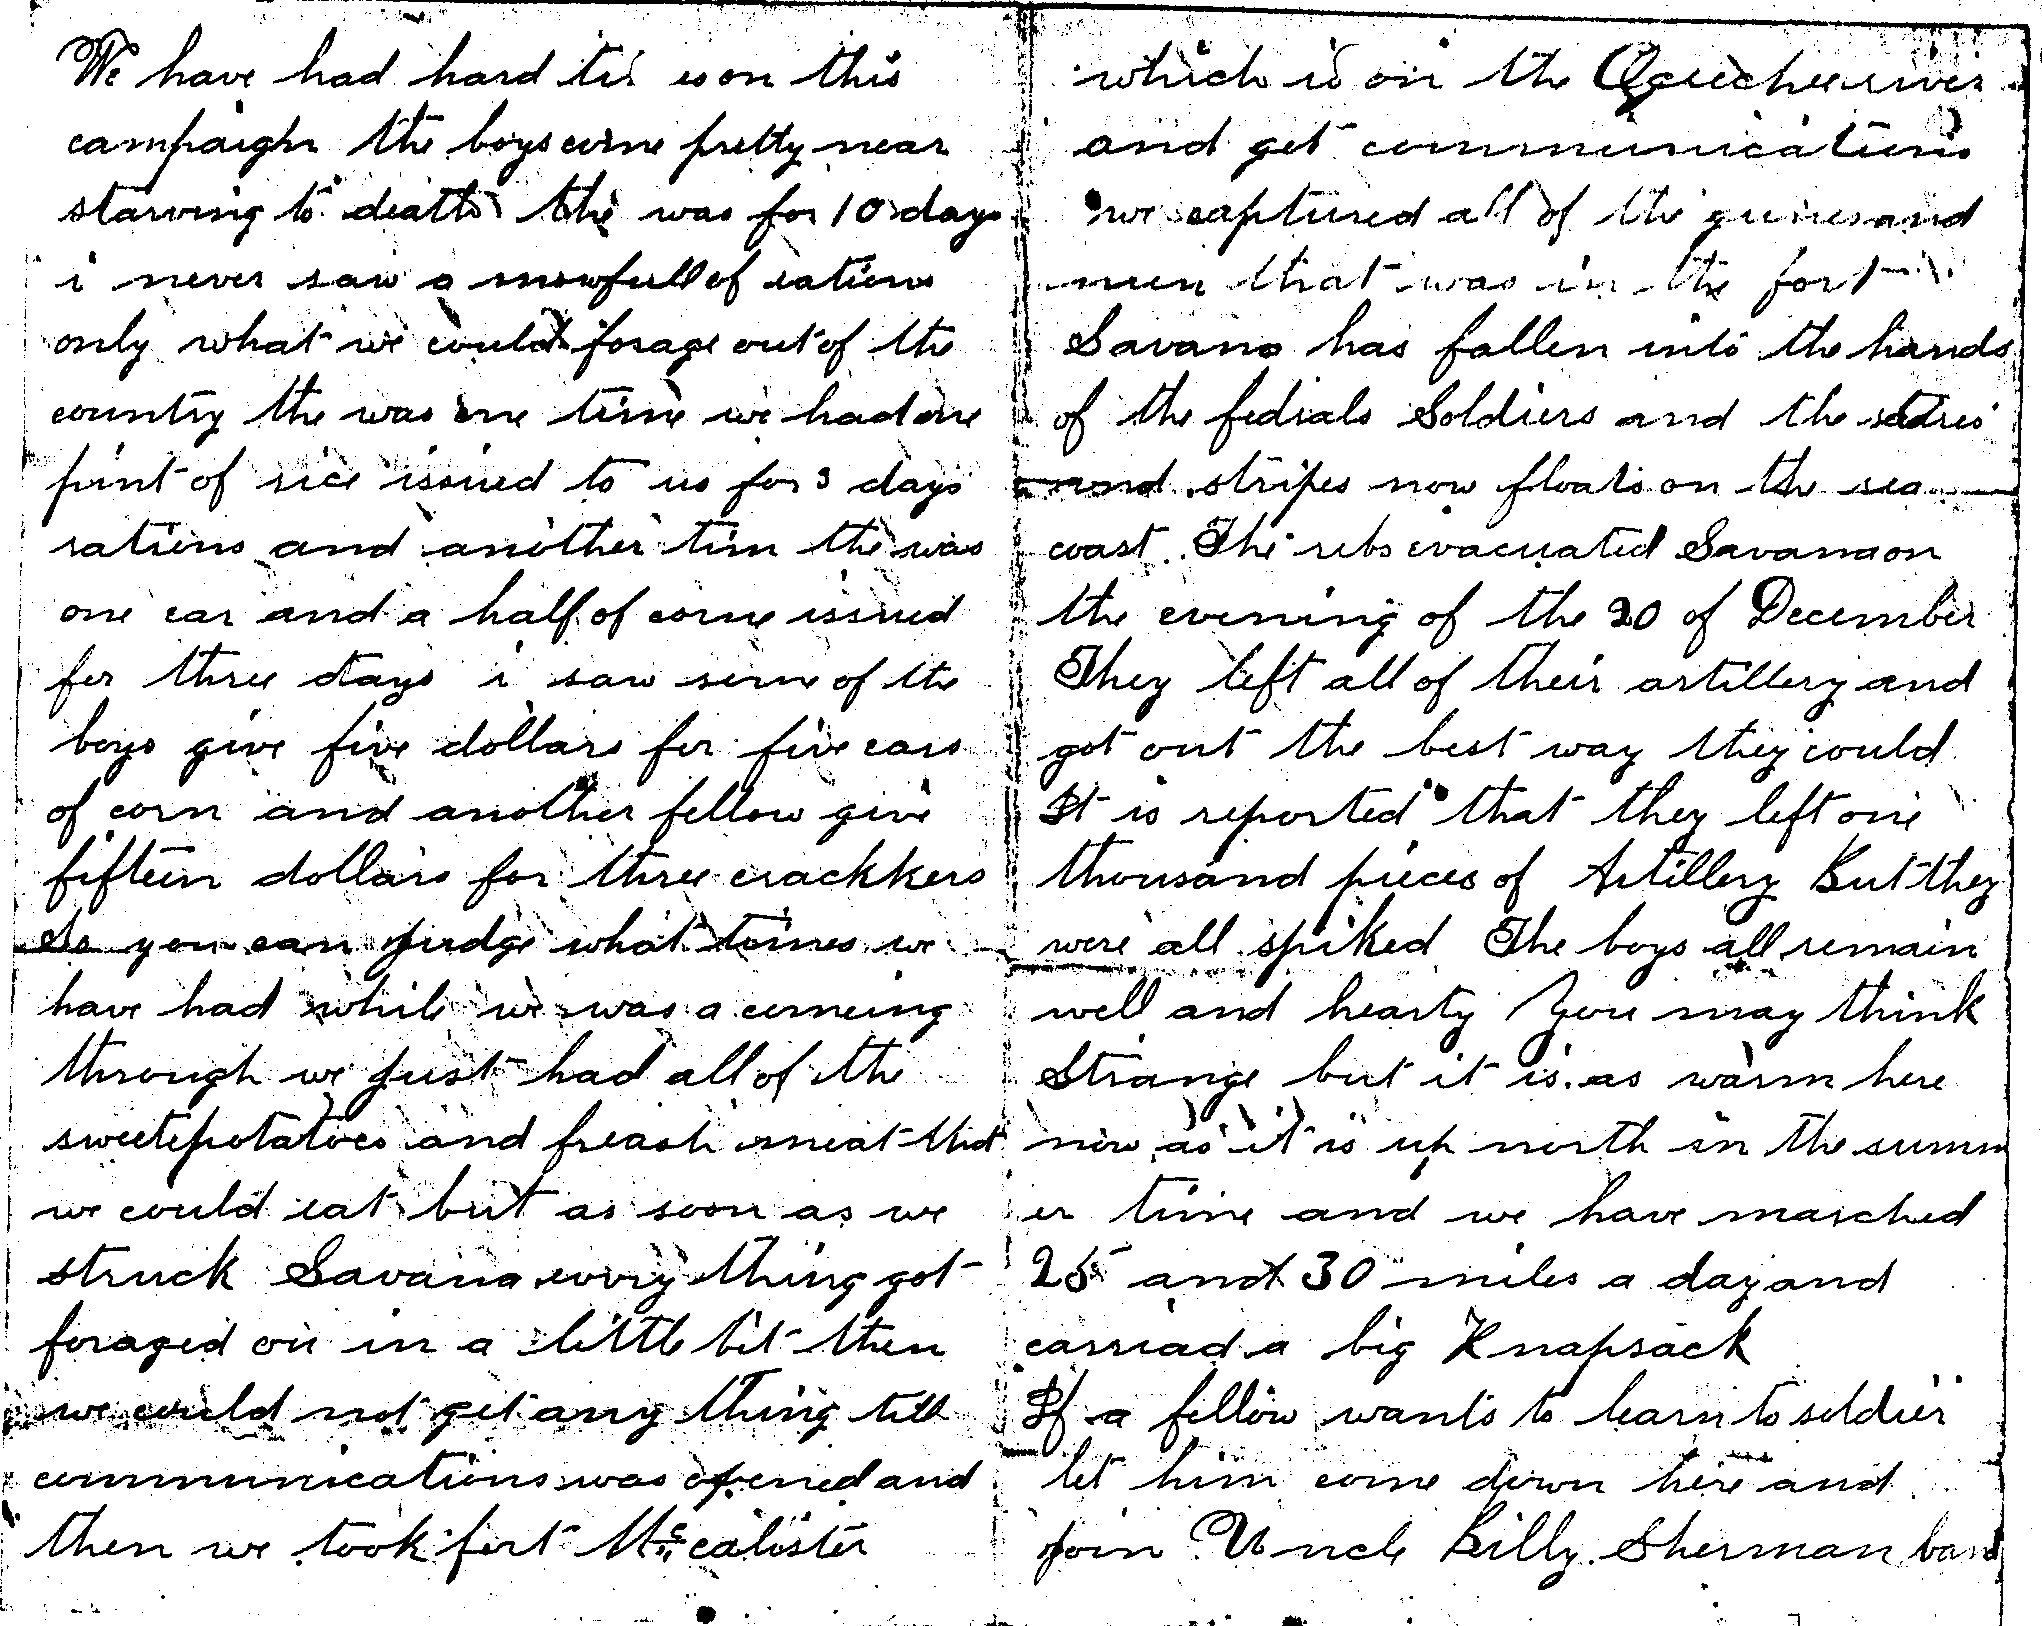 We have had hard tis es on this
campaign the boys come pretty near
starving to death the was for 10 days
i never saw a mowfull of rations
only what we could forage out of the
country the was one time we had one
pint of rice issued to us for 3 days
rations and another tim the was
one ear and a half of corne issued
for three days i saw some of the
boys give five dollars for five ears
of corn and another fellow give
fifteen dollars for three crackkers
So you can judge what times we
have had while we was a comeing
through we just had all of the
sweetepotatoes and freash meat that
we could eat but as soon as we
struck Savana evvry thing got
foraged on in a little bit then
we could not get any thing till
communications was opened and
then we took fort Mc calister
which is on the river
and get communications
we captured all of the gunes and
men that was in the fort
Savana has fallen into the hands
of the fedrals Soldiers and the
and stripes now floats on the sea
coast. The rebs evacuated Savana on
the evening of the 20 of December
They left all of their artillery and
got out the best way they could
It is reported that they left one
thousand pieces of Artillery But they
were all spiked The boys all remain
well and hearty You may think
Strange but it is as warm here
now as it is up north in the summ
er time and we have marched
25 and 30 miles a day and
carriad a big Knapsack
If a fellow wants to learn to soldier
let him come down here and
join Uncle Billy Sherman band